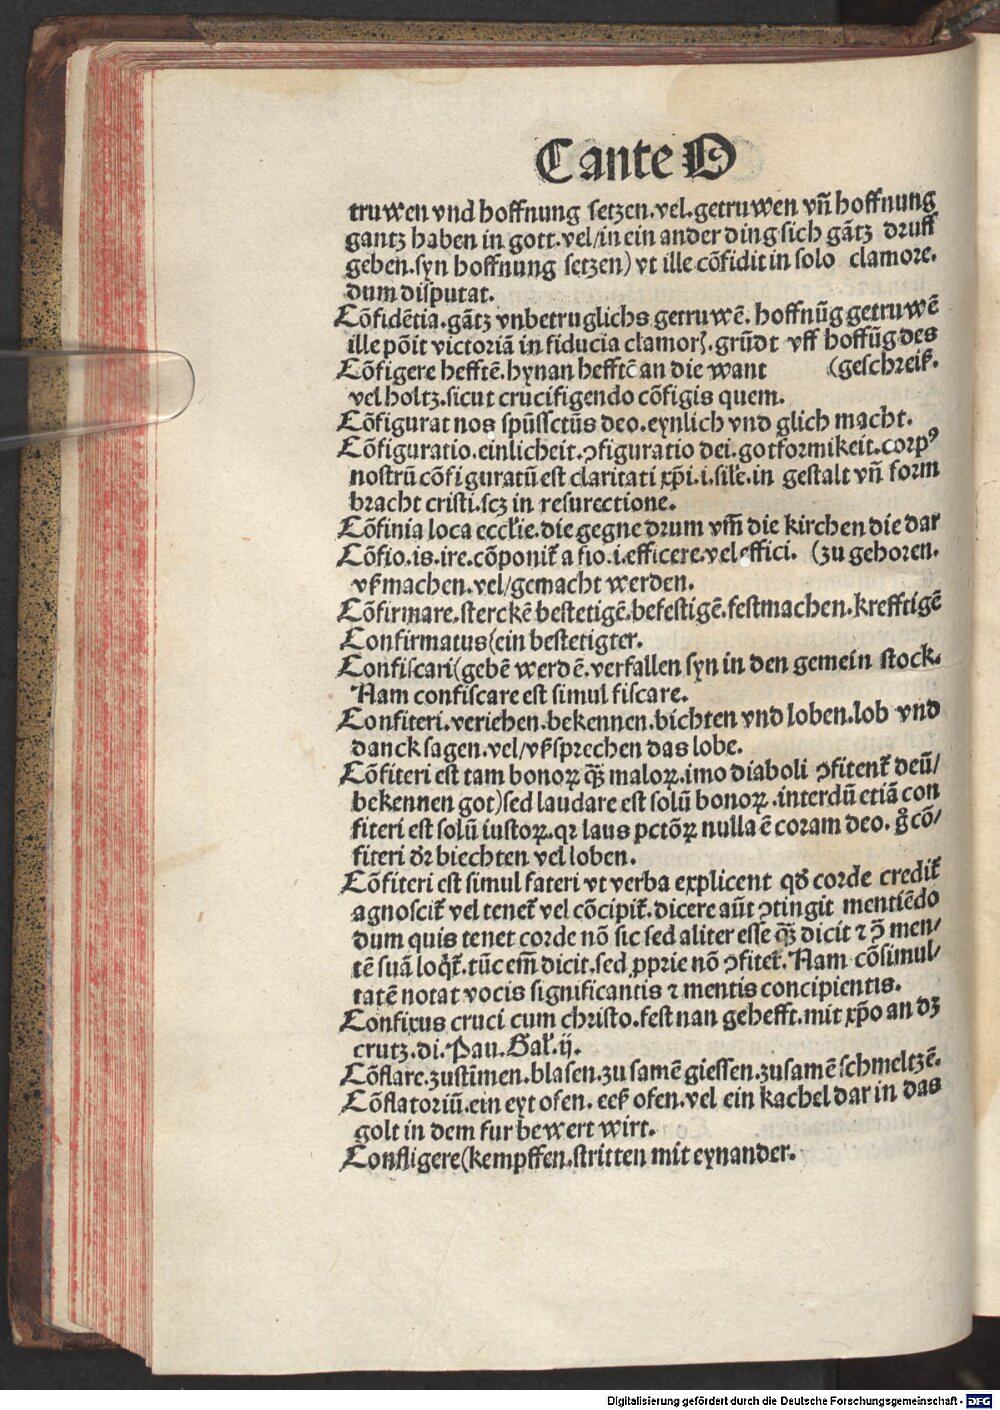 C ante O
truwen vnd hoffnung setzen.vel.getruwen vn̄ hoffnung
gantz haben in gott.vel/in ein ander ding sich gātz druff
geben.syn hoffnung setzen) vt ille cōfidit in solo clamore.
dum disputat.
Cōfidētia.gātz vnbetruglichs getruwē.hoffnūg getruwē
ille pōit victoriā in fiducia clamoꝝ.grūdt vff hoffūg des
Cōfigere hefftē.hynan hefftē an die want (geschreiß.
vel holtz.sicut crucifigendo cōfigis quem.
Cōfigurat nos spūssctūs deo.eynlich vnd glich macht.
Cōfiguratio.einlicheit.ↄfiguratio dei.gotformikeit.corpꝰ
nostrū cōfiguratū est claritati xp̄i.i.sil̄e.in gestalt vn̄ form
bracht cristi.scꝫ in resurectione.
Cōfinia loca eccl̄ie.die gegne drum vm̄ die kirchen die dar
Cōfio.is.ire.cōponit̄ a fio.i.efficere.vel effici. (zu gehoren.
vß machen.vel/gemacht werden.
Cōfirmare.sterckē bestetigē.befestigē.festmachen.krefftigē
Confirmatus(ein bestetigter.
Confiscari(gebē werdē.verfallen syn in den gemein stock.
Nam confiscare est simul fiscare.
Confiteri.veriehen.bekennen.bichten vnd loben.lob vnd
danck sagen.vel/vßsprechen das lobe.
Cōfiteri est tam bonoꝝ qꝫ̄ maloꝝ.imo diaboli ↄfitent̄ deū/
bekennen got)sed laudare est solū bonoꝝ.interdū etiā con
fiteri est solū iustoꝝ.qꝛ laus pctōꝝ nulla ē coram deo.gͦ cō/
fiteri dꝛ biechten vel loben.
Cōfiteri est simul fateri vt verba explicent qd̄ corde credit̄
agnoscit̄ vel tenet̄ vel cōcipit̄.dicere aūt ↄtingit mentiēdo
dum quis tenet corde nō sic sed aliter esse qꝫ̄ dicit ⁊ ꝯ̄ men/
tē suā loq̄t̄.tūc em̄ dicit.sed ꝓprie nō ↄfitet̄.Nam cōsimul/
tatē notat vocis significantis ⁊ mentis concipientis.
Confixus cruci cum christo.fest nan gehefft.mit xp̄o an dꝫ
crutz.di.Pau.Gal̄.ij.
Cōflare.zustīmen.blasen.zu samē giessen.zusamē schmeltzē.
Cōflatoriū.ein eyt ofen. eeß ofen.vel ein kachel dar in das
golt in dem fur bewert wirt.
Confligere(kempffen.stritten mit eynander.
Digitalisierung gefördert durch die Deutsche Forschungsgemeinschaft - DFG